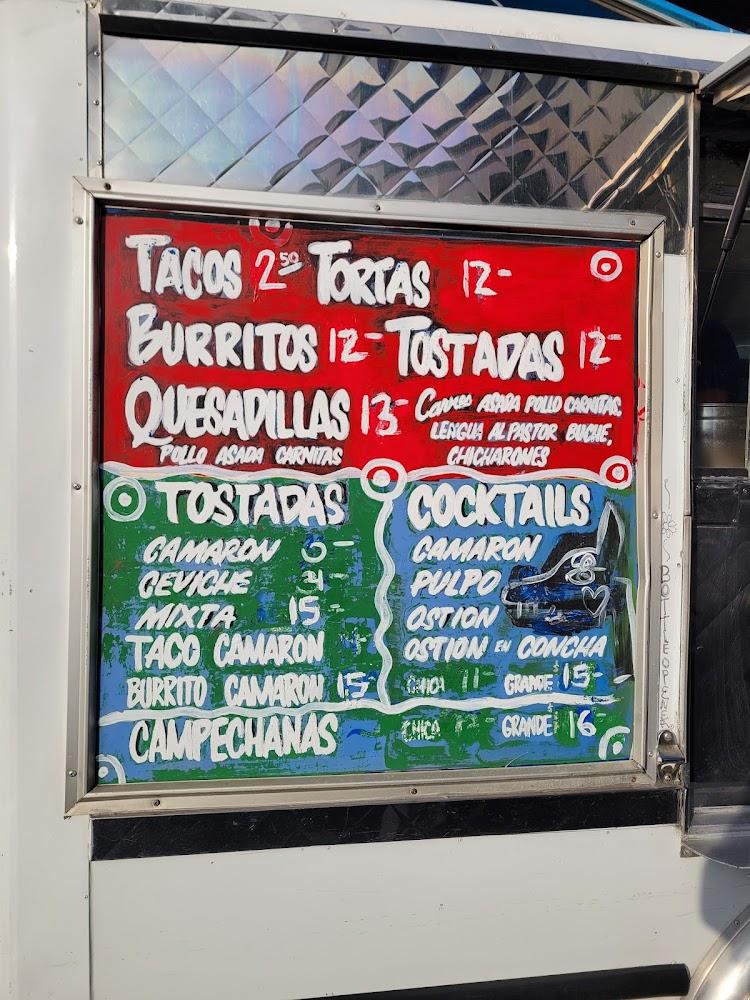 TACOS 2.50 TORTAS 12-
BURRITOS 12- TOSTADAS 12-
QUESADILLAS 13-
POLLO ASADA CARNITAS
Carnes ASADA POLLO CARNITAS,
LENGUA AL PASTOR BUCHE,
CHICHARONES
TOSTADAS
CAMARON
CEVICHE
MIXTA 15-
TACO CAMARON
BURRITO CAMARON 15-
COCKTAILS
CAMARON
PULPO
OSTION
OSTION EN CONCHA
CHICA 11- GRANDE $15-
CAMPECHANAS CHICA GRANDE $16-
BOTTLE OPENER